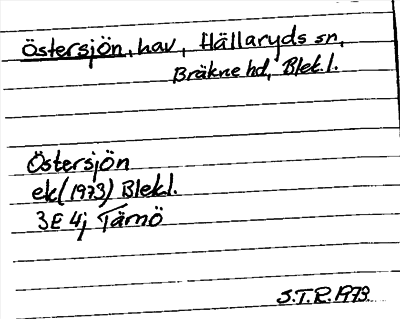 Östersjön, hav, Hällaryds sn,
Bräkne hd, Blek.l.
Östersjön
ek(1973) Blekl.
3E 4j Tärnö
S.T.R. 1973.